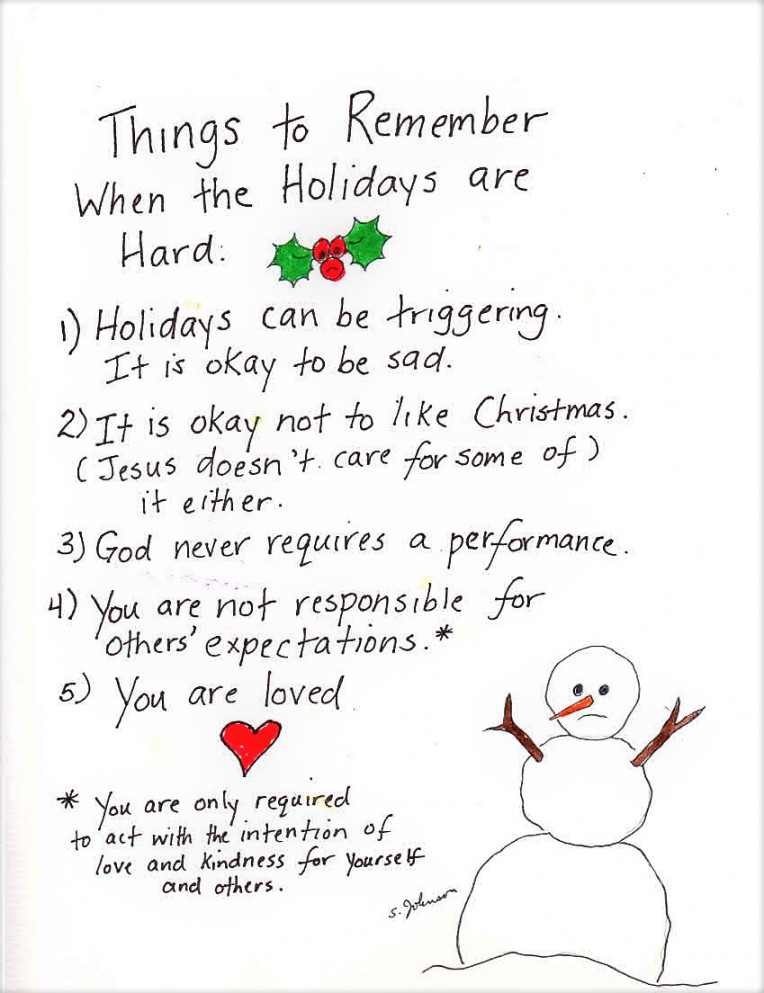 Things to Remember
When the Holidays are
Hard:
1) Holidays can be triggering.
It is okay to be sad.
2) It is okay not to like Christmas.
(Jesus doesn't care for some of)
it either.
3) God never requires a performance.
4) You are not responsible for
others' expectations.*
5) You are loved
* You are only required
to act with the intention of
love and kindness for yourself
and others.
S. Johnson